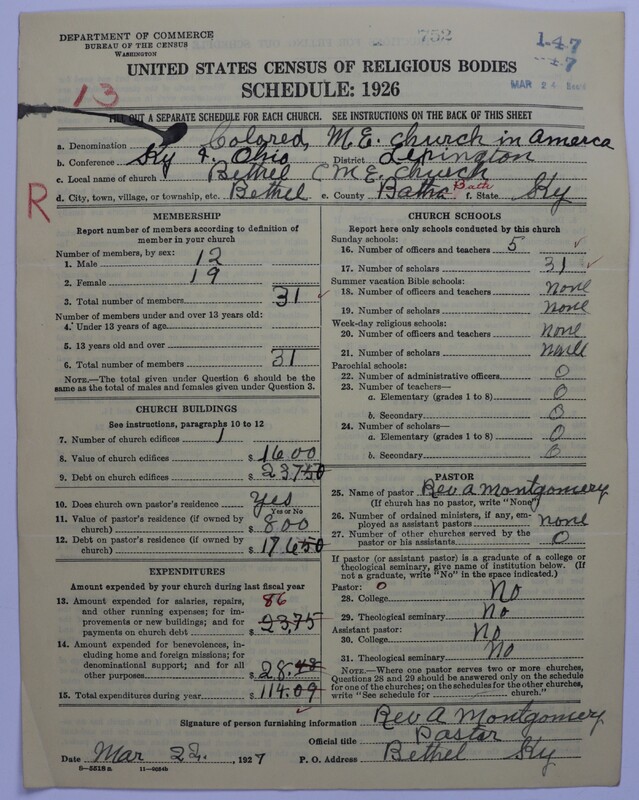 DEPARTMENT OF COMMERCE
BUREAU OF THE CENSUS
WASHINGTON
752
1-47
MAR 24
UNITED STATES CENSUS OF RELIGIOUS BODIES
SCHEDULE: 1926
13
FILL OUT A SEPARATE SCHEDULE FOR EACH CHURCH. SEE INSTRUCTIONS ON THE BACK OF THIS SHEET
a. Denomination Colored, M.E. church in America
b. Conference Ky & Ohio District Lexington
c. Local name of church Bethel C M E. church
R
d. City, town, village, or township, etc. Bethel e. County Batha Bath f. State Ky
MEMBERSHIP
Report number of members according to definition of
member in your church
Number of members, by sex:
1. Male 12
2. Female 19
3. Total number of members 31
Number of members under and over 13 years old:
4. Under 13 years of age
5. 13 years old and over
6. Total number of members 31
NOTE.—The total given under Question 6 should be the
same as the total of males and females given under Question 3.
CHURCH BUILDINGS
See instructions, paragraphs 10 to 12
7. Number of church edifices 1
8. Value of church edifices $ 1600
9. Debt on church edifices $ 23750
10. Does church own pastor's residence Yes
Yes or No
11. Value of pastor's residence (if owned by
church) $ 800
12. Debt on pastor's residence (if owned by
church) $ 17650
EXPENDITURES
Amount expended by your church during last fiscal year
13. Amount expended for salaries, repairs, 86
and other running expenses; for im-
provements or new buildings; and for
payments on church debt $ 23,75
14. Amount expended for benevolences, in-
cluding home and foreign missions; for
denominational support; and for all
other purposes $ 28.
15. Total expenditures during year $ 114.09
CHURCH SCHOOLS
Report here only schools conducted by this church
Sunday schools:
16. Number of officers and teachers 5
17. Number of scholars 31
Summer vacation Bible schools:
18. Number of officers and teachers none
19. Number of scholars none
Week-day religious schools:
20. Number of officers and teachers none
21. Number of scholars
Parochial schools:
22. Number of administrative officers 0
23. Number of teachers—
a. Elementary (grades 1 to 8) 0
b. Secondary 0
24. Number of scholars—
a. Elementary (grades 1 to 8) 0
b. Secondary 0
PASTOR
25. Name of pastor Rev A Montgomery
(If church has no pastor, write "None")
26. Number of ordained ministers, if any, em-
ployed as assistant pastors none
27. Number of other churches served by the
pastor or his assistants 0
If pastor (or assistant pastor) is a graduate of a college or
theological seminary, give name of institution below. (If
not a graduate, write "No" in the space indicated.)
Pastor: 0
28. College No
29. Theological seminary No
Assistant pastor:
30. College No
31. Theological seminary No
NOTE.—Where one pastor serves two or more churches,
Questions 28 and 29 should be answered only on the schedule
for one of the churches; on the schedules for the other churches,
write "See schedule for church."
Signature of person furnishing information Rev A Montgomery
Official title Pastor
Date Mar 22, 1927 P. O. Address Bethel Ky